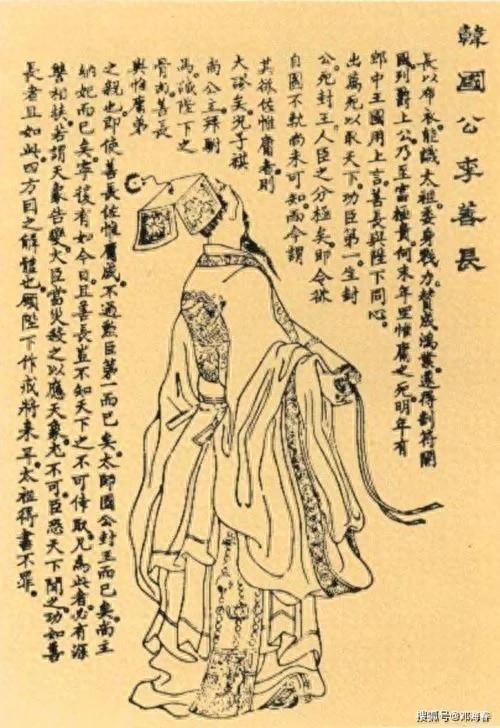 韓國公李善長
長以布衣能識太祖。委身戮力。贊成鴻業。遂得剖符開
國。列爵上公。乃至富極貴。何末年罣惟庸之死。明年有
郎中王國用上言。善長與陛下同心。
出萬死以取天下。功臣第一。生封
公。死封王。人臣之分極矣。即令欲
自圖不軌。尚未可知。而今謂
其欲佐惟庸者。則
大謬矣。況子祺
尚公主。拜駙
馬。誠陛下之
骨肉。善長
與惟庸。第
之親也。即使善長佐惟庸成。不過勳臣第一而已矣。太師國公封王而已矣。尚主
納妃而已矣。寧復有加今日。且善長豈不知天下之不可倖取。凡為此者。必有深
讐相扶。若謂天象告變。大臣當災。殺之以應天象。尤不可。臣恐天下聞之。功如善
長者且如此。四方因之解體也。願陛下作戒將來耳。太祖得書不罪。
搜狐号@邓海春